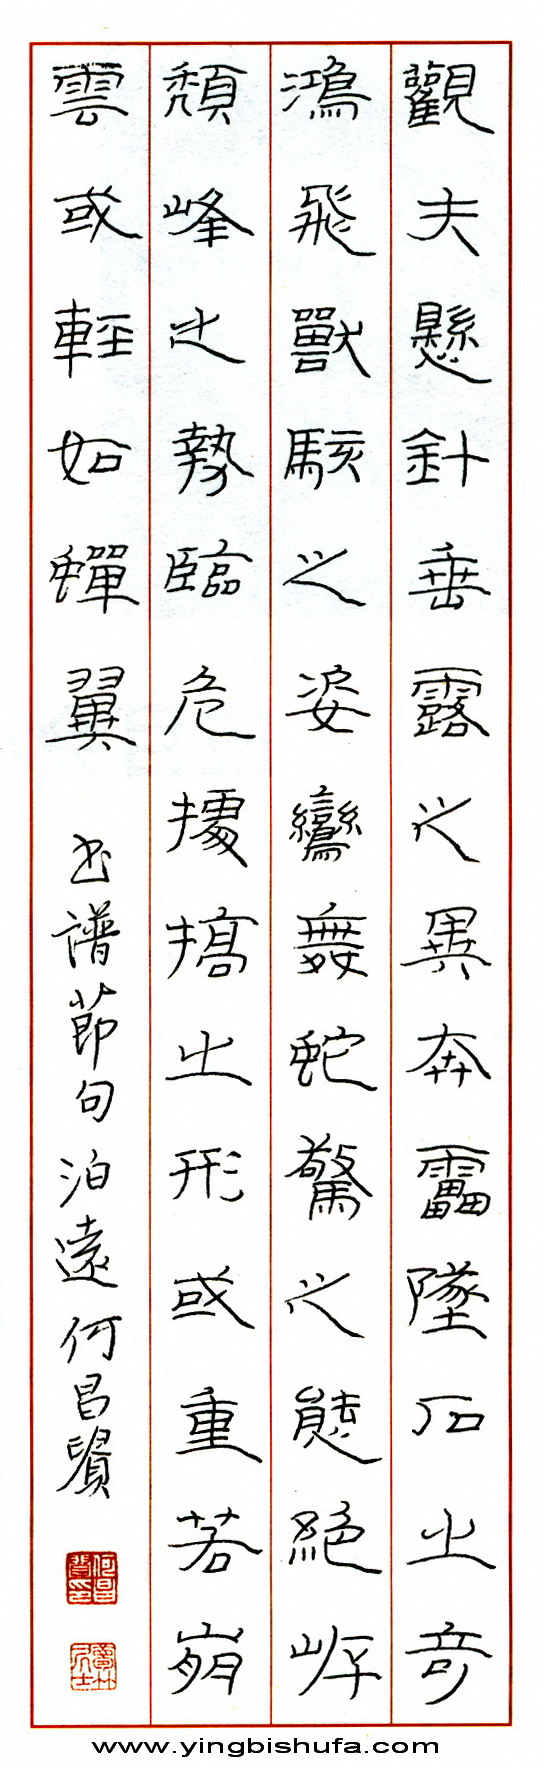 觀夫懸針垂露之異奔雷墜石之奇
鴻飛獸駭之姿鸞舞蛇驚之態絕岸
頹峰之勢臨危據槁之形或重若崩
雲或輕如蟬翼 书譜節句 泊遠何昌贤
www.yingbishufa.com